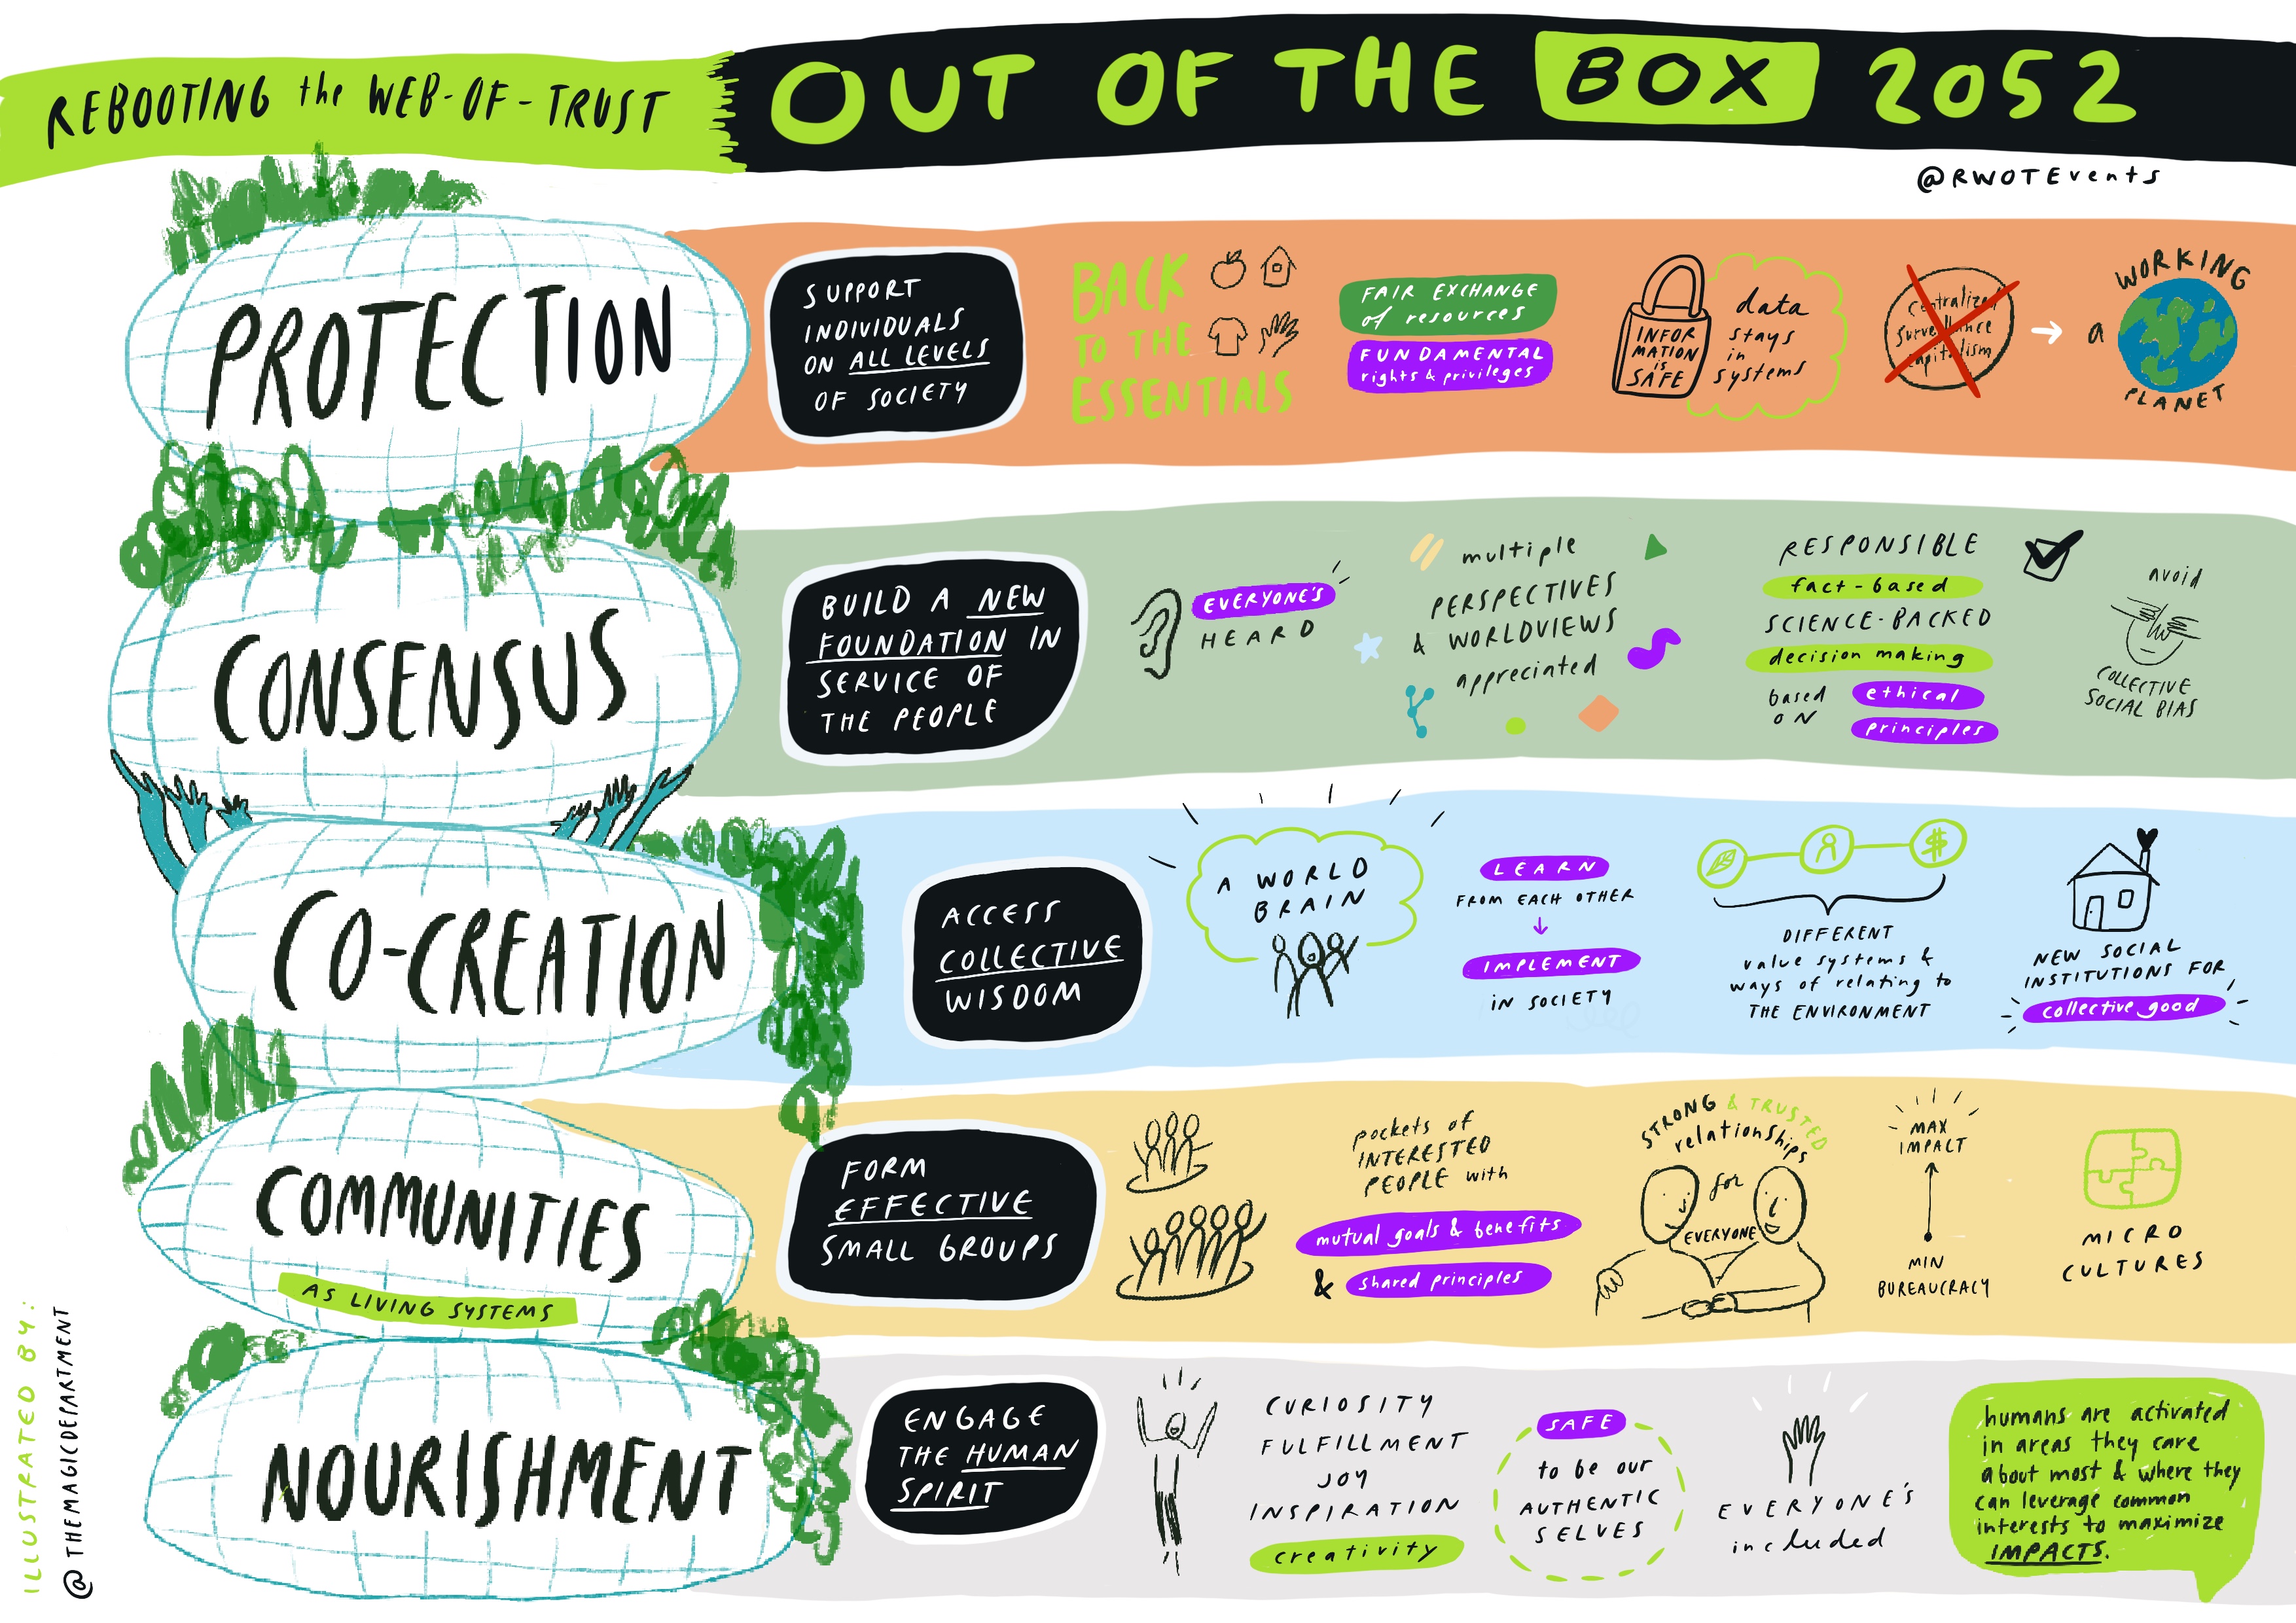 REBOOTING the WEB-OF-TRUST
OUT OF THE BOX 2052
@RWOTEvents
PROTECTION
SUPPORT
INDIVIDUALS
ON ALL LEVELS
OF SOCIETY
BACK
TO THE
ESSENTIALS
FAIR EXCHANGE
of resources
FUNDAMENTAL
rights & privileges
INFOR
MATION
is
SAFE
data
stays
in
systems
Centralized
Surveillance
capitalism
WORKING
a
PLANET
CONSENSUS
BUILD A NEW
FOUNDATION IN
SERVICE OF
THE PEOPLE
EVERYONE'S
HEARD
multiple
PERSPECTIVES
& WORLDVIEWS
appreciated
RESPONSIBLE
fact-based
SCIENCE-BACKED
decision making
based
ON
ethical
principles
avoid
COLLECTIVE
SOCIAL BIAS
CO-CREATION
ACCESS
COLLECTIVE
WISDOM
A WORLD
BRAIN
LEARN
FROM EACH OTHER
IMPLEMENT
IN SOCIETY
$
DIFFERENT
value systems &
ways of relating to
THE ENVIRONMENT
NEW SOCIAL
INSTITUTIONS FOR
collective good
COMMUNITIES
AS LIVING SYSTEMS
FORM
EFFECTIVE
SMALL GROUPS
pockets of
INTERESTED
PEOPLE with
mutual goals & benefits
& shared principles
STRONG & TRUSTED
relationships
for
EVERYONE
MAX
IMPACT
MIN
BUREAUCRACY
MICRO
CULTURES
NOURISHMENT
ENGAGE
THE HUMAN
SPIRIT
CURIOSITY
FULFILLMENT
JOY
INSPIRATION
creativity
SAFE
to be our
AUTHENTIC
SELVES
EVERYONE'S
included
humans are activated
in areas they care
about most & where they
can leverage common
interests to maximize
IMPACTS.
ILLUSTRATED BY:
@THEMAGICDEPARTMENT